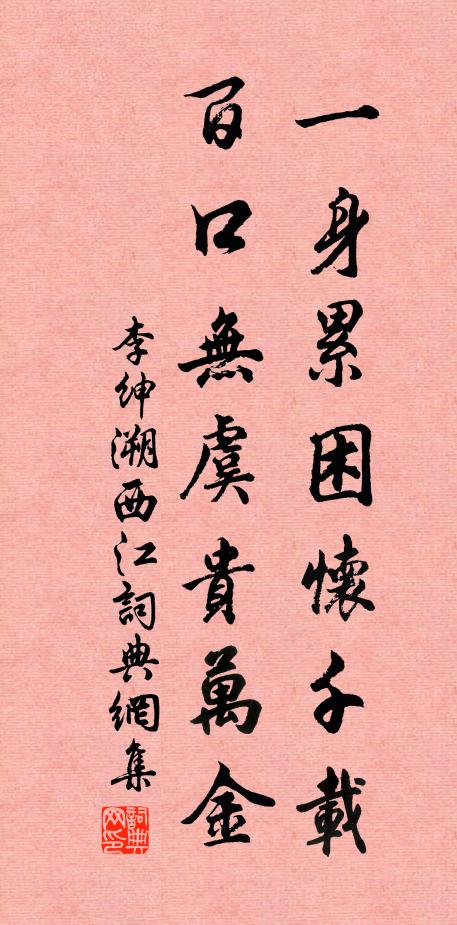 一身累困懷千載
百口無虞貴萬金
李紳溯西江詞典網集
詞典网印